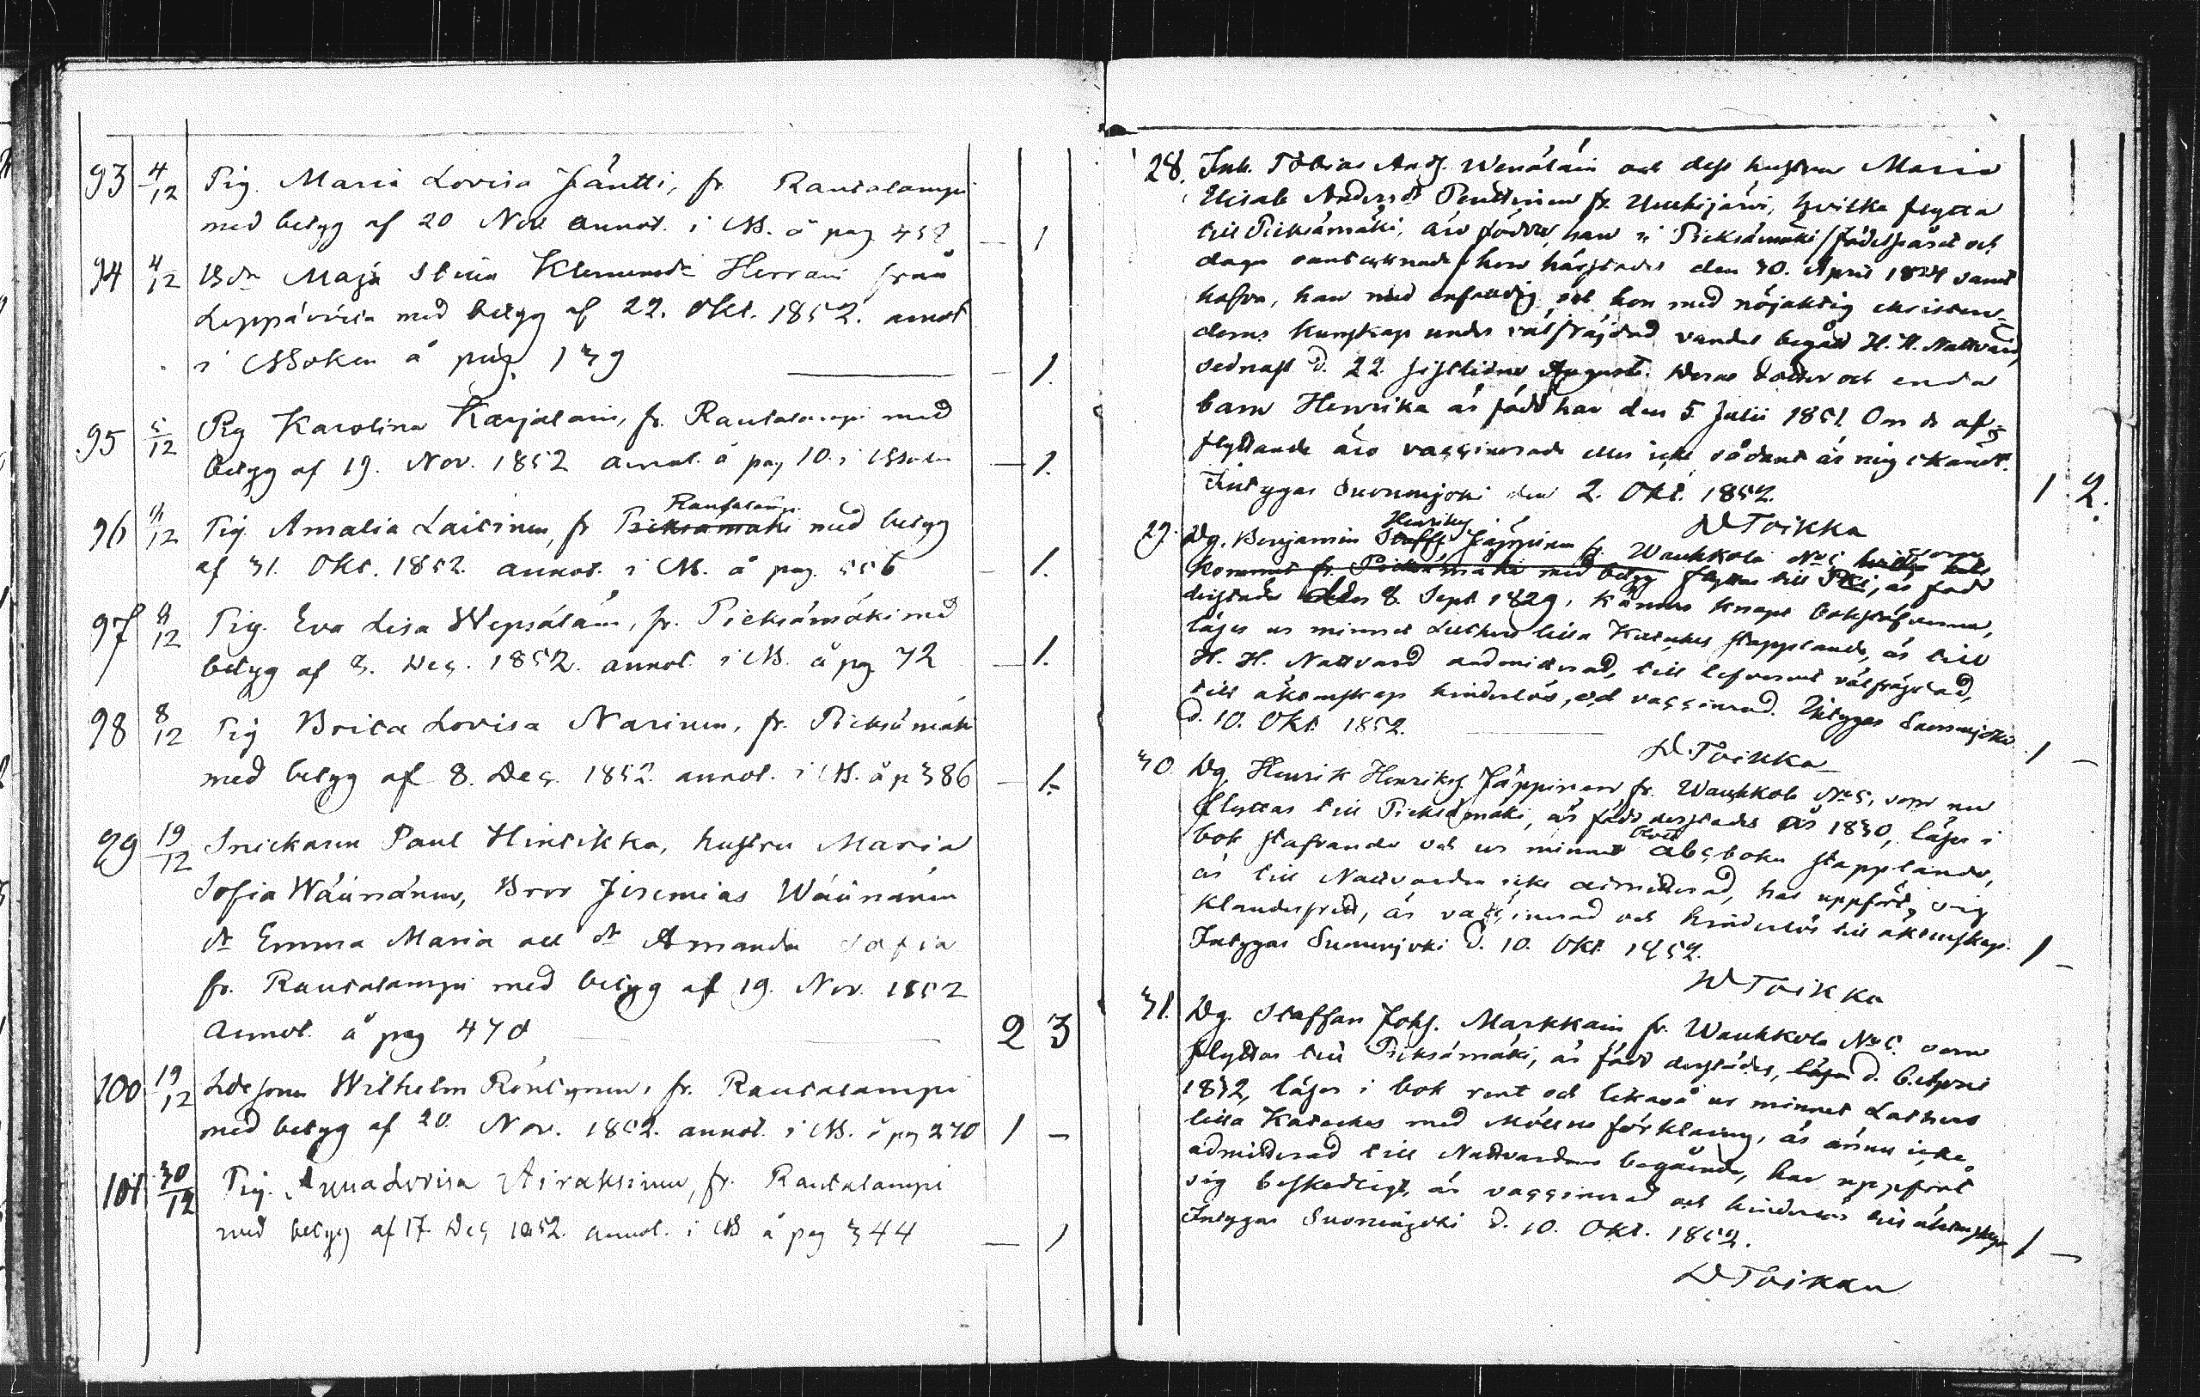 93 4/12 Pig. Maria Lovisa Jäntti, fr. Rautalampi
med betyg af 20 Nov. annot. i KB. å pag 458 — 1
94 4/12 Bdr Maja Stina Klemensdr Herrain från
Leppävirta med betyg af 22. Okt. 1852. annot
i KBoken å pag. 139 — 1.
95 5/12 Pig Karolina Karjalain, fr. Rautalampi med
betyg af 19. Nov. 1852 annot. å pag 10. i KBoken — 1.
Rautalampi
96 9/12 Pig. Amalia Laitinen, fr Pieksämäki med betyg
af 31. Okt. 1852. annot. i KB. å pag. 556 — 1.
97 9/12 Pig. Eva Lisa Wepsäläin, fr. Pieksämäki med
betyg af 3. Dec. 1852. annot. i KB. å pag 72 — 1.
98 8/12 Pig Brita Lovisa Narinen, fr. Pieksämäki
med betyg af 8. Dec. 1852. annot. i KB. å p 386 — 1.
99 19/12 Snickaren Paul Hintikka, hustru Maria
Sofia Wäänänen, Bror Jeremias Wäänänen
dr Emma Maria och dr Amanda Sofia
fr. Rautalampi med betyg af 19. Nov. 1852
annot. å pag 470 2 3
100 19/12 Ldesonen Wilhelm Röntynen, fr. Rautalampi
med betyg af 20. Nov. 1852. annot. i KB. å pg 270 1 —
101 30/12 Pig. Anna Lovisa Airaksinen, fr. Rautalampi
med betyg af 17. Dec 1852. annot. i KB å pag 344 — 1
28. Inh. Tobias Andj. Wenäläin och dess hustru Maria
Elisab. Andersdr Penttinen fr. Uuhijärvi, hvilka flytta
till Pieksämäki, äro födde, han i Pieksämäki (födelseåret och
dagen oantecknade) hon härstädes den 30. April 1824 samt
hafva, han med enfaldig och hon med nöjaktig christen-
doms kunskap under välfräjdad vandel begått H. H. Nattvard,
sednast d. 22. sistlidne Augusti. Deras dotter och enda
barn Henrika är född här den 5 Julii 1851. Om de af-
flyttande äro vaccinerade eller icke sådant är mig okändt.
Intygar Suonenjoki den 2. Okt. 1852. 1. 2.
D Toikka
Henriksj
29. Dg. Benjamin Staffs Jäppinen fr. Wauhkola No 5
kommit fr. Pieksämäki med betyg flyttar till Pki, är född
derstädes den 8. Sept. 1829, känner knapt bokstäfverna,
läser ur minnet Lutheri lilla Kateches stapplande, är till
H. H. Nattvard admitterad, till lefvernet välfräjdad,
till äktenskap hinderlös, och vaccinerad. Intygar Suonenjoki
d. 10. Okt. 1852. 1 —
D. Toikka
30 Dg. Henrik Henriksj. Jäppinen fr. Wauhkola No 5, som nu
flyttar till Pieksämäki, är född derstädes år 1830, läser i
bok stafvande och ur minnet abcboken stapplande,
är till Nattvarden icke admitterad, har uppfört sig
klanderfritt, är vaccinerad och hinderlös till äktenskap.
Intygar Suonenjoki d. 10. Okt. 1852. 1 —
D Toikka
31. Dg. Staffan Johsj. Markkain fr. Wauhkola No 5. som
flyttar till Pieksämäki, är född derstädes, läser d. 6. Apri
1832, läser i bok rent och likaså ur minnet Lutheri
lilla Kateches med Möllers förklaring, är ännu icke
admitterad till Nattvardens begående, har uppfört
sig beskedligt, är vaccinerad och hinderlös till äktenskap
Intygar Suonenjoki d. 10. Okt. 1852. 1 —
D Toikka